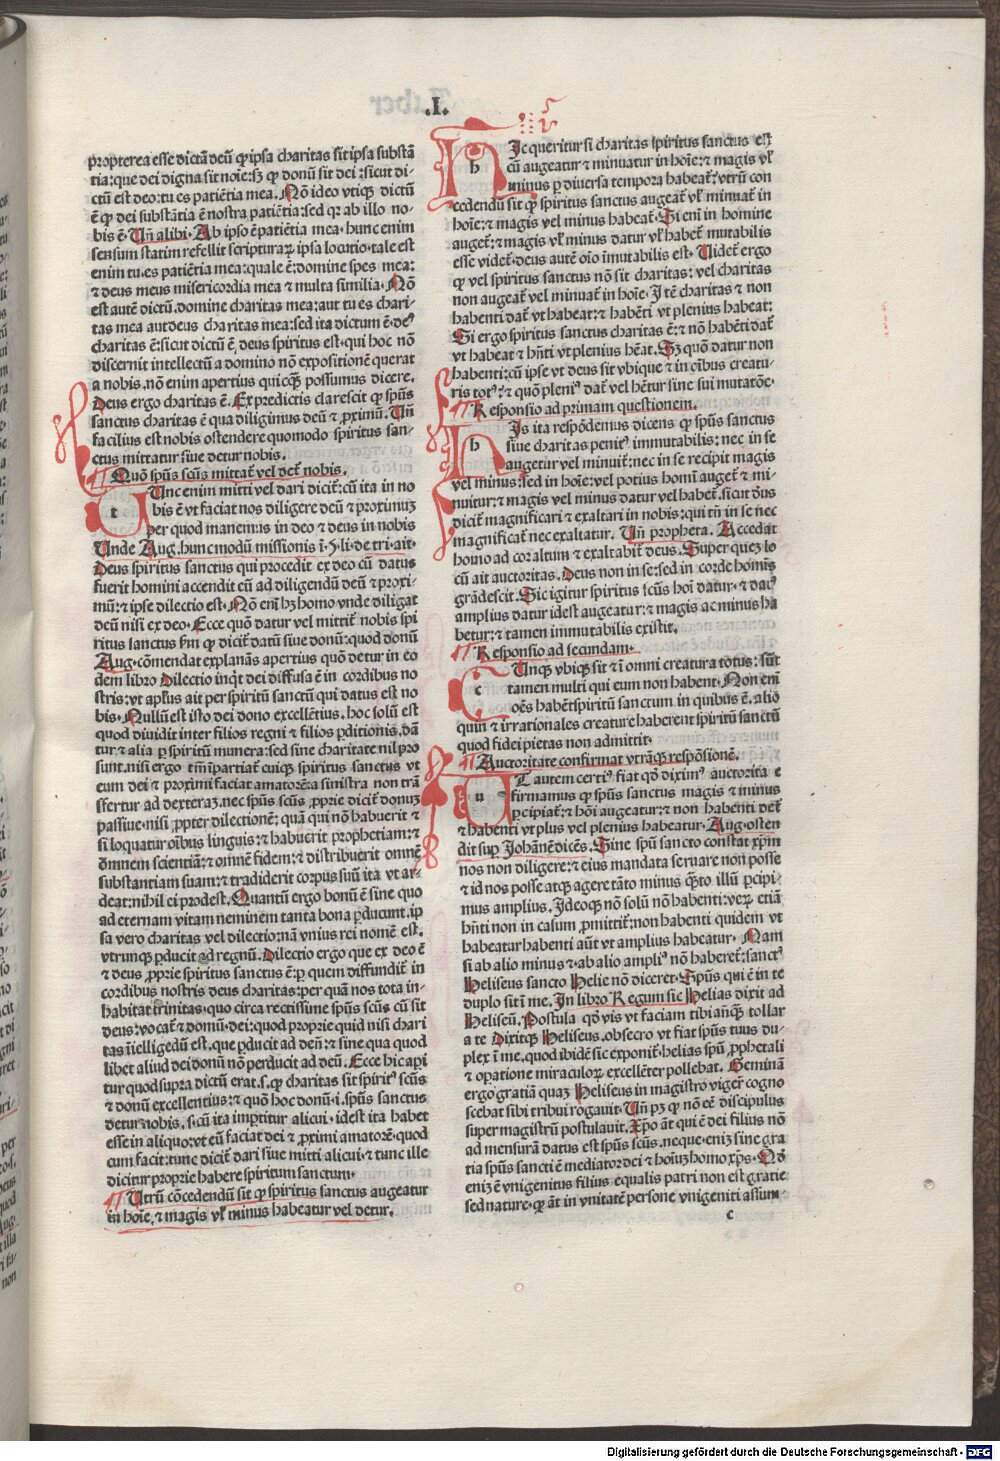 .I.
propterea esse dictā deū qꝫ ipsa charitas sit ipsa substā
tia: que dei digna sit noīe: sꝫ qꝫ donū sit dei: sicut di-
ctū est deo: tu es patiētia mea. Nō ideo vtiqꝫ dictū
ē qꝫ dei substātia ē nostra patiētia: sed qꝛ ab illo no-
bis ē. Un̄ alibi. Ab ipso ē patiētia mea. hunc enim
sensum statim refellit scripturaꝝ ipsa locutio. tale est
enim tu es patiētia mea: quale ē: domine spes mea:
⁊ deus meus misericordia mea ⁊ multa similia. Nō
est autē dictū. domine charitas mea: aut tu es chari-
tas mea aut deus charitas mea: sed ita dictum ē. deꝰ
charitas ē: sicut dictū ē, deus spiritus est. qui hoc nō
discernit intellectū a domino nō expositionē querat
a nobis. nō enim apertius quicqꝫ possumus dicere.
Deus ergo charitas ē. Ex predictis clarescit qꝫ spūs
sanctus charitas ē qua diligimus deū ⁊ proximū. Un̄
facilius est nobis ostendere quomodo spiritus san-
ctus mittatur siue detur nobis.
Quō spūs scūs mittat᷑ vel det᷑ nobis.
t Unc enim mitti vel dari dicit᷑: cū ita in no
bis ē vt faciat nos diligere deū ⁊ proximuꝫ
per quod manemus in deo ⁊ deus in nobis
Unde Aug. hunc modū missionis ī.5.li.de tri.ait.
Deus spiritus sanctus qui procedit ex deo cū datus
fuerit homini accendit eū ad diligendū deū ⁊ proxi-
mū: ⁊ ipse dilectio est. Nō enī hꝫ homo vnde diligat
deū nisi ex deo. Ecce quō datur vel mittit᷑ nobis spi
ritus sanctus fm qꝫ dicit᷑ datū siue donū: quod donū
Aug. cōmendat explanās apertius quō detur in eo
dem libro Dilectio inqͥt dei diffusa ē in cordibus no
stris: vt aplūs ait per spiritū sanctū qui datus est no
bis. Nullū est isto dei dono excellētius. hoc solū est
quod diuidit inter filios regni ⁊ filios ꝑditionis. dā
tur ⁊ alia ꝑ spiritū munera: sed sine charitate nil pro
sunt. nisi ergo tm̄ īpartiat᷑ cuiqꝫ spiritus sanctus vt
eum dei ⁊ proximi faciat amatorē: a sinistra non trā
sfertur ad dexteraꝫ. nec spūs scūs ꝓprie dicit᷑ donuꝫ
passiue. nisi ꝓpter dilectionē: quā qui nō habuerit ⁊
si loquatur oībus linguis: ⁊ habuerit prophetiam: ⁊
ōmnem scientiā: ⁊ omnē fidem: ⁊ distribuerit omnē
substantiam suam: ⁊ tradiderit corpus suū ita vt ar-
deat: nihil ei prodest. Quantū ergo bonū ē sine quo
ad eternam vitam neminem tanta bona ꝑducunt. ip
sa vero charitas vel dilectio: nā vnius rei nomē est.
vtrunqꝫ ꝑducit ad regnū. Dilectio ergo que ex deo ē
⁊ deus ꝓprie spiritus sanctus ē: ꝑ quem diffundit᷑ in
cordibus nostris deus charitas: per quā nos tota in-
habitat trinitas. quo circa rectissime spūs scūs cū sit
deus: vocat᷑ ⁊ donū. dei: quod proprie quid nisi chari
tas īielligedū est. que ꝑducit ad deū: ⁊ sine qua quod
libet aliud dei donū nō perducit ad deū. Ecce hic api
tur quod supra dictū erat. s. qꝫ charitas sit spiritꝰ scūs
⁊ donū excellentius: ⁊ quō hoc donū. i. spūs sanctus
detur nobis. s. cū ita imꝑtitur alicui. idest ita habet
esse in aliquo: vt eū faciat dei ⁊ ꝓximi amatorē. quod
cum facit: tunc dicit᷑ dari siue mitti alicui. ⁊ tunc ille
dicitur proprie habere spiritum sanctum.
Utrū cōcedendū sit qꝫ spiritus sanctus augeatur
in hoīe. ⁊ magis vł minus habeatur vel detur.
h Ic queritur si charitas spiritus sanctus est
cū augeatur ⁊ minuatur in hoīe: ⁊ magis vł
minus ꝑ diuersa tempora habeat᷑: vtrū con
cedendū sit qꝫ spiritus sanctus augeat᷑ vł minuat᷑ in
hoīe: ⁊ magis vel minus habeat᷑. Si enī in homine
auget᷑: ⁊ magis vł minus datur vł habet᷑ mutabilis
esse videt᷑. deus autē oīo īmutabilis est. Videt᷑ ergo
qꝫ vel spiritus sanctus nō sit charitas: vel charitas
non augeat᷑ vel minuat᷑ in hoīe. Itē charitas ⁊ non
habenti dat᷑ vt habeat: ⁊ habēti vt plenius habeat:
Si ergo spiritus sanctus charitas ē: ⁊ nō habēti dat᷑
vt habeat ⁊ hn̄ti vt plenius hēat. Sꝫ quō datur non
habenti: cū ipse vt deus sit vbique ⁊ in oībus creatu-
ris totꝰ: ⁊ quō pleniꝰ dat᷑ vel hētur sine sui mutatōe.
Responsio ad primam questionem.
h Is ita respōdemus dicens qꝫ spūs sanctus
siue charitas penitꝰ immutabilis: nec in se
augetur vel minuit᷑: nec in se recipit magis
vel minus: sed in hoīe: vel potius homī auget᷑ ⁊ mi-
nuitur: ⁊ magis vel minus datur vel habet᷑. sicut dūs
dicit᷑ magnificari ⁊ exaltari in nobis: qui tn̄ in se nec
magnificat᷑ nec exaltatur. Un̄ propheta. Accedat
homo ad cor altum ⁊ exaltabit᷑ deus. Super queꝫ lo
cū ait auctoritas. Deus non in se: sed in corde homīs
grādescit. Sic igitur spiritus scūs hoī datur. ⁊ datꝰ
amplius datur idest augeatur: ⁊ magis ac minus ha
betur: ⁊ tamen immutabilis existit.
Responsio ad secundam.
c Unqꝫ vbiqꝫ sit ⁊ ī omni creatura totus: sūt
tamen multi qui eum non habent. Non enī
oēs habēt spiritū sanctum in quibus ē. alio
quin ⁊ irrationales creature haberent spiritū sanctū
quod fidei pietas non admittit.
Auctoritate confirmat vtrāqꝫ respōsionē.
u T autem certiꝰ fiat qꝫ diximꝰ auctorita e
firmamus qꝫ spūs sanctus magis ⁊ minus
ꝑcipiat᷑: ⁊ hōi augeatur: ⁊ non habenti det᷑
⁊ habenti vt plus vel plenius habeatur. Aug. osten
dit suꝑ Johānē dicēs. Sine spū sancto constat xp̄m
nos non diligere: ⁊ eius mandata seruare non posse
⁊ id nos posse atqꝫ agere tāto minus qꝫto illū ꝑcipi-
mus amplius. Ideoqꝫ nō solū nō habenti: veꝝ etiā
hn̄ti non in casum ꝓmittit᷑: non habenti quidem vt
habeatur habenti aūt vt amplius habeatur. Nam
si ab alio minus ⁊ ab alio ampliꝰ nō haberet᷑: sanctꝰ
Heliseus sancto Helie nō diceret. Spūs qui ē in te
duplo sit ī me. In libro Regum sic Helias dixit ad
Heliseū. Postula qꝫ vis vt faciam tibi anqꝫ tollar
a te Dixitqꝫ Heliseus. obsecro vt fiat spūs tuus du-
plex ī me. quod ibidē sic exponit᷑. helias spū ꝓphetali
⁊ oꝑatione miraculoꝝ excellēter pollebat. Geminā
ergo gratiā quaꝫ Heliseus in magistro viger̄ cogno
scebat sibi tribui rogauit. Un̄ pꝫ qꝫ nō eē discipulus
super magistrū postulauit. Xpo āt qui ē dei filius nō
ad mensurā datus est spūs scūs. neque. eniꝫ sine gra
tia spūs sancti ē mediator dei ⁊ hoiuꝫ homo xp̄s. Nō
eniꝫ ē vnigenitus filius equalis patri non est gratie
sed nature. qꝫ āt in vnitatē persone vnigeniti assum
c
Digitalisierung gefördert durch die Deutsche Forschungsgemeinschaft - DFG